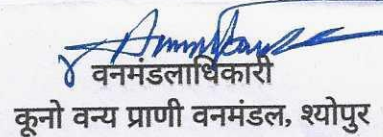 वनमंडलाधिकारी
कूनो वन्य प्राणी वनमंडल, श्योपुर